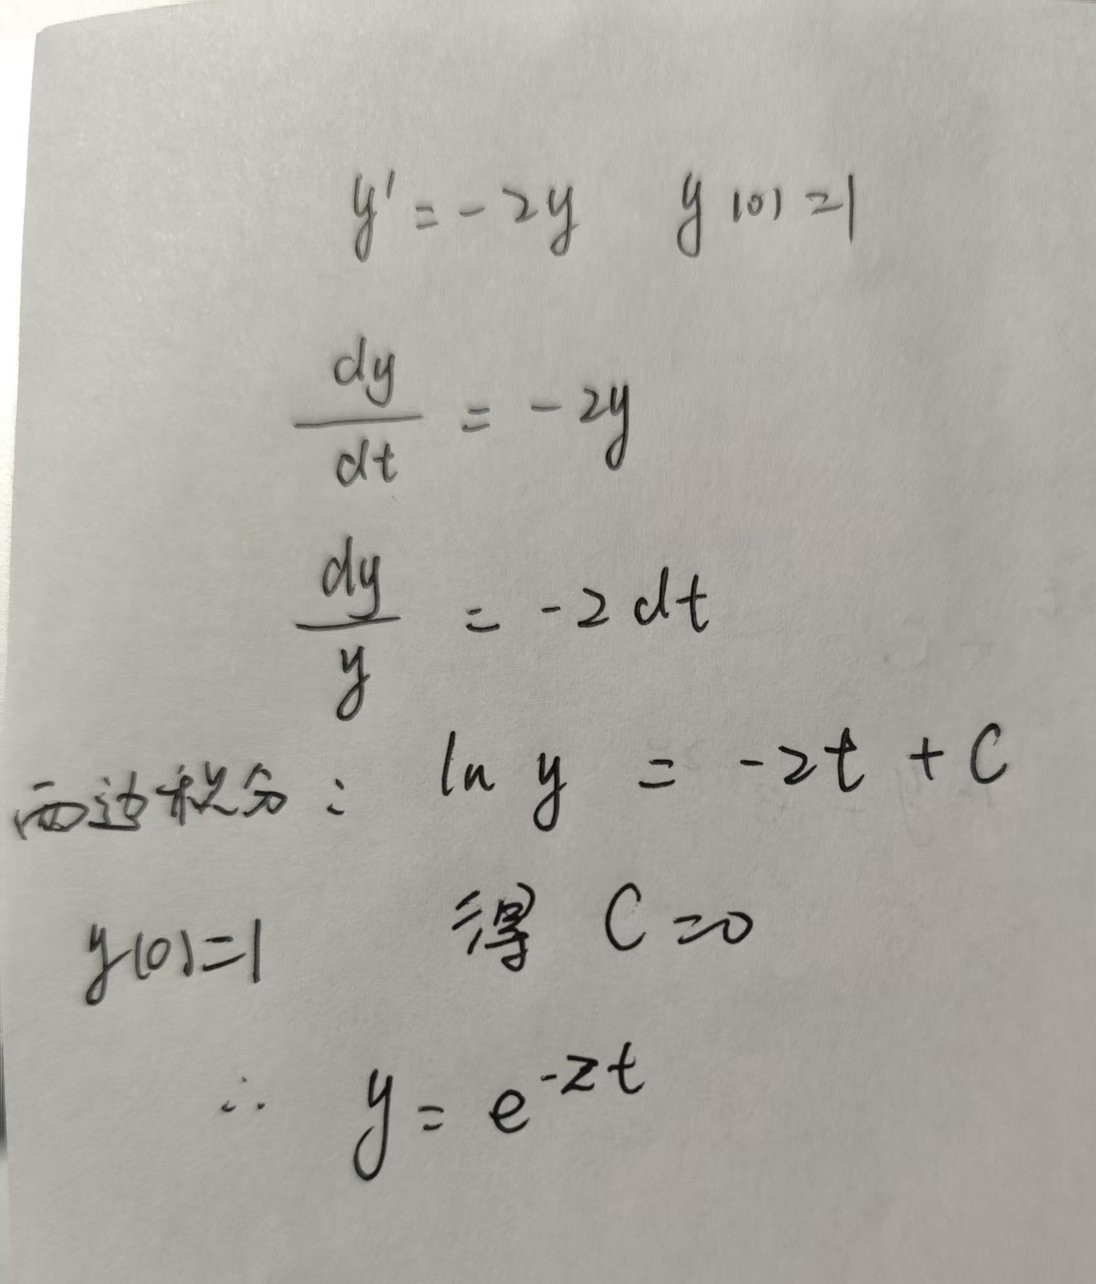 y' = -2y y(0) = 1
dy/dt = -2y
dy/y = -2 dt
两边积分: ln y = -2t + C
y(0)=1 得 C=0
∴ y = e^{-2t}